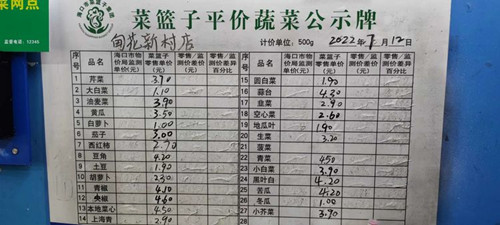 菜网点
监督电话：12345
海口市菜篮子集团
菜篮子平价蔬菜公示牌
甸花新村店
计价单位：500g 2022年7月12日
序号 品名 海口市物价局监测单价(元) 菜篮子零售单价(元) 零售/监测价差价(元) 零售/监测价差异百分比 序号 品名 海口市物价局监测单价(元) 菜篮子零售单价(元) 零售/监测价差价(元) 零售/监测价差异百分比
1 芹菜 3.90 15 圆白菜 1.90
2 大白菜 1.10 16 蒜台 4.30
3 油麦菜 3.90 17 韭菜 2.90
4 黄瓜 3.50 18 空心菜 2.60
5 白萝卜 1.00 19 地瓜叶 1.90
6 茄子 3.00 20 生菜 3.20
7 西红柿 2.90 21 菠菜
8 豆角 4.20 22 青菜 4.50
9 土豆 1.90 23 小白菜 3.90
10 胡萝卜 2.30 24 黑叶白 4.20
11 青椒 4.10 25 苦瓜 4.20
12 尖椒 4.60 26 冬瓜 1.00
13 本地菜心 4.50 27 小芥菜 3.90
14 上海青 2.90 28